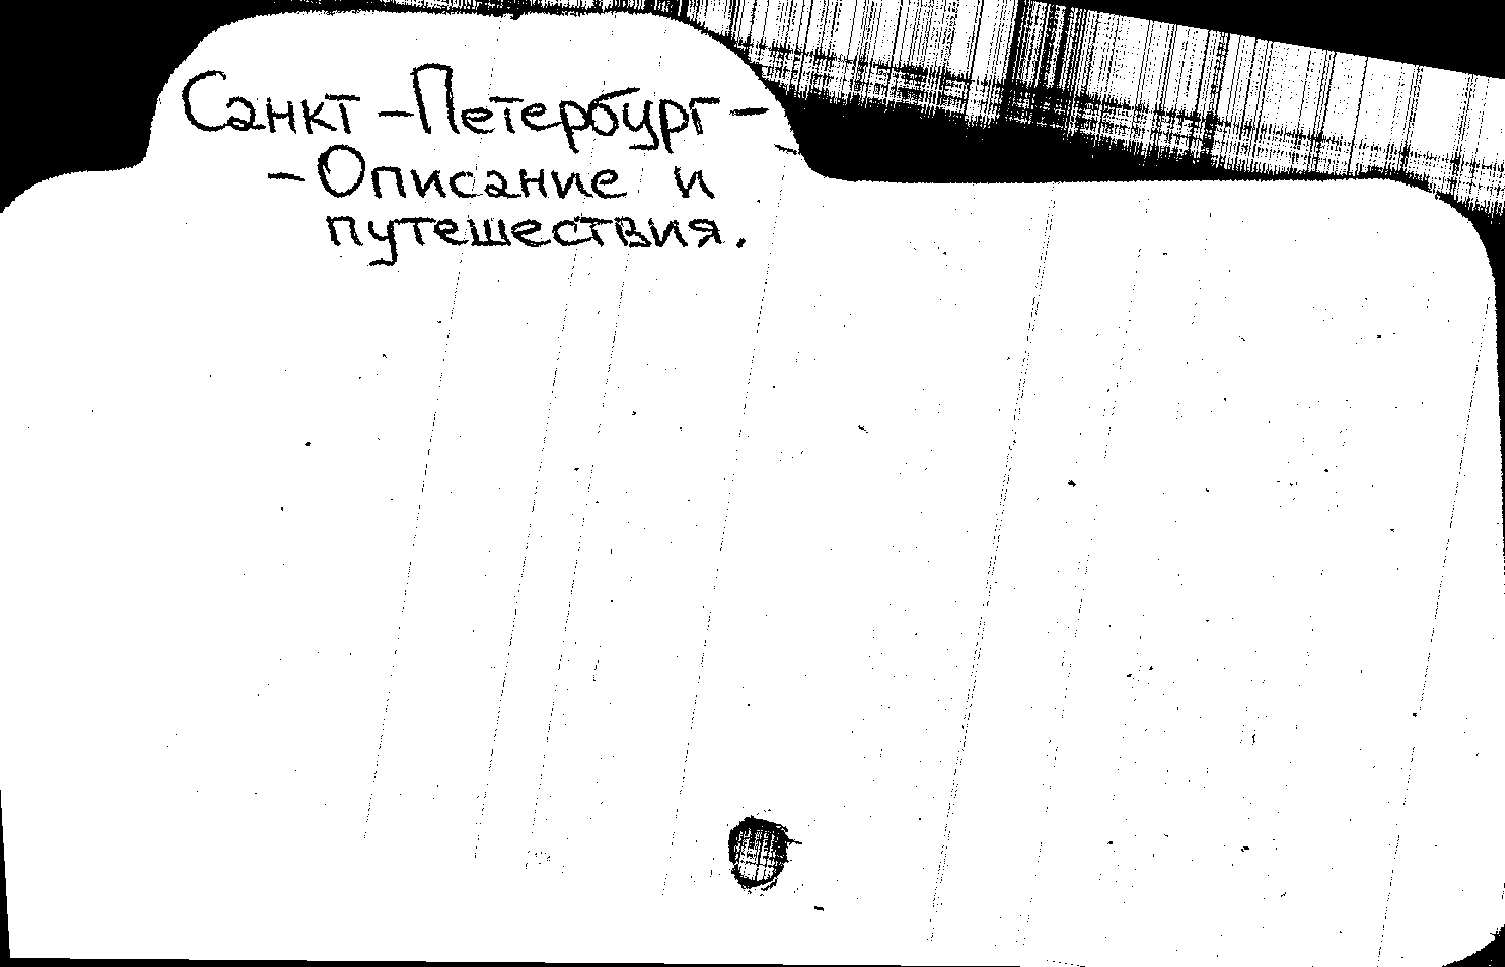 Санкт-Петербург-
-Описание и
путешествия.